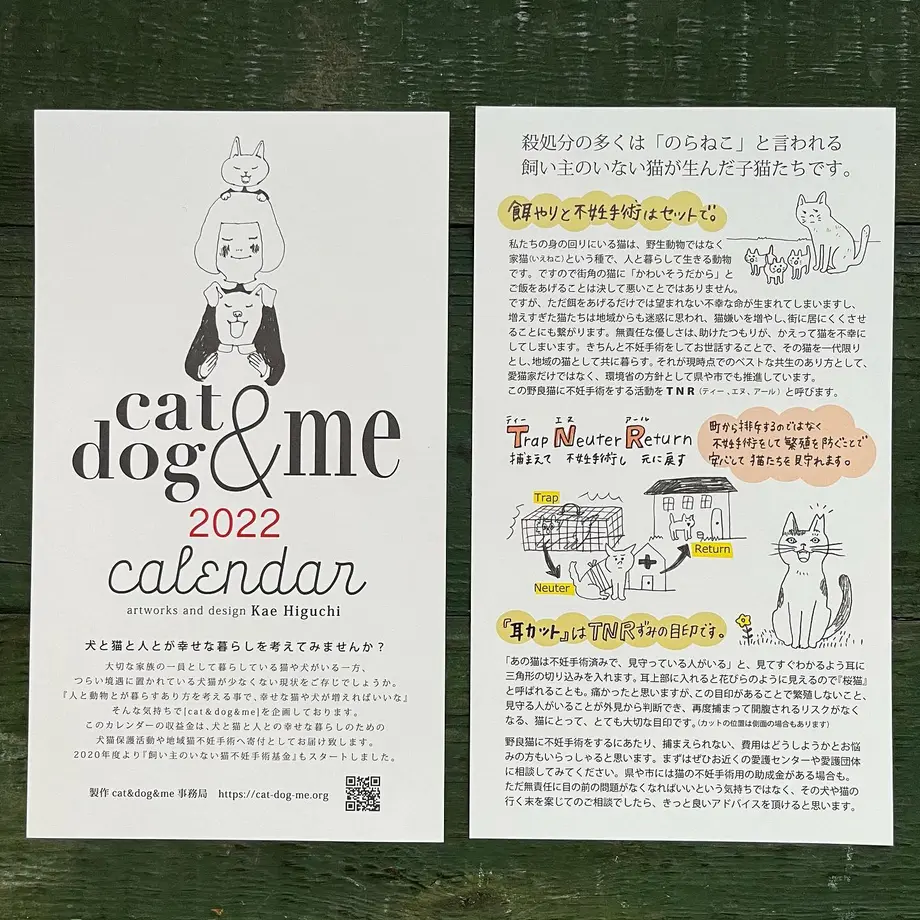 cat
dog&me
2022
calendar
artworks and design Kae Higuchi
犬と猫と人とが幸せな暮らしを考えてみませんか？
大切な家族の一員として暮らしている猫や犬がいる一方、
つらい境遇に置かれている犬猫が少なくない現状をご存じでしょうか。
『人と動物とが暮らすあり方を考える事で、幸せな猫や犬が増えればいいな』
そんな気持ちで[cat&dog&me]を企画しております。
このカレンダーの収益金は、犬と猫と人との幸せな暮らしのための
犬猫保護活動や地域猫不妊手術へ寄付としてお届け致します。
2020年度より『飼い主のいない猫不妊手術基金』もスタートしました。
製作 cat&dog&me 事務局 https://cat-dog-me.org
殺処分の多くは「のらねこ」と言われる
飼い主のいない猫が生んだ子猫たちです。
餌やりと不妊手術はセットで。
私たちの身の回りにいる猫は、野生動物ではなく
家猫(いえねこ)という種で、人と暮らして生きる動物
です。ですので街角の猫に「かわいそうだから」と
ご飯をあげることは決して悪いことではありません。
ですが、ただ餌をあげるだけでは望まれない不幸な命が生まれてしまいますし、
増えすぎた猫たちは地域からも迷惑に思われ、猫嫌いを増やし、街に居にくくさせ
ることにも繋がります。無責任な優しさは、助けたつもりが、かえって猫を不幸に
してしまいます。きちんと不妊手術をしてお世話することで、その猫を一代限り
とし、地域の猫として共に暮らす。それが現時点でのベストな共生のあり方として、
愛猫家だけではなく、環境省の方針として県や市でも推進しています。
この野良猫に不妊手術をする活動をTNR（ティー、エヌ、アール）と呼びます。
ティー エヌ アール
Trap Neuter Return
捕まえて 不妊手術し 元に戻す
町から排斥するのではなく
不妊手術をして繁殖を防ぐことで
安心して猫たちを見守れます。
Trap
Return
Neuter
『耳カット』はTNRずみの目印です。
「あの猫は不妊手術済みで、見守っている人がいる」と、見てすぐわかるよう耳に
三角形の切り込みを入れます。耳上部に入れると花びらのように見えるので『桜猫』
と呼ばれることも。痛かったと思いますが、この目印があることで繁殖しないこと、
見守る人がいることが外見から判断でき、再度捕まって開腹されるリスクがなく
なる、猫にとって、とても大切な目印です。（カットの位置は側面の場合もあります）
野良猫に不妊手術をするにあたり、捕まえられない、費用はどうしようかとお悩
みの方もいらっしゃると思います。まずはぜひお近くの愛護センターや愛護団体
に相談してみてください。県や市には猫の不妊手術用の助成金がある場合も。
ただ無責任に目の前の問題がなくなればいいという気持ちではなく、その犬や猫の
行く末を案じてのご相談でしたら、きっと良いアドバイスを頂けると思います。